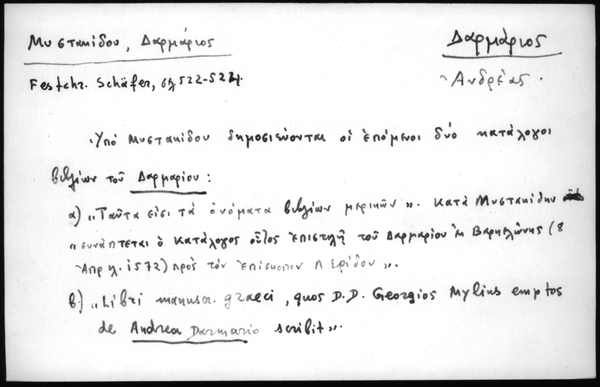 Μυστακίδου, Δαρμάριος
Δαρμάριος
Ἀνδρέας.
Festchr. Schäfer, σελ 522-524.
Ὑπό Μυστακίδου δημοσιεύονται οἱ ἑπόμενοι δύο κατάλογοι
βιβλίων τοῦ Δαρμαρίου :
α) „Ταῦτα εἰσι τά ὀνόματα βιβλίων μερικῶν". Κατά Μυστακίδην
„συνάπτεται ὁ κατάλογος οὗτος ἐπιστολῇ τοῦ Δαρμαρίου ἐκ Βαρκελώνης (8
Ἀπριλ. 1572) πρός τόν ἐπίσκοπον Λερίδου".
β.) „Libri manuscr. graeci, quos D.D. Georgios Mylius emptos
de Andrea Darmario scribit".